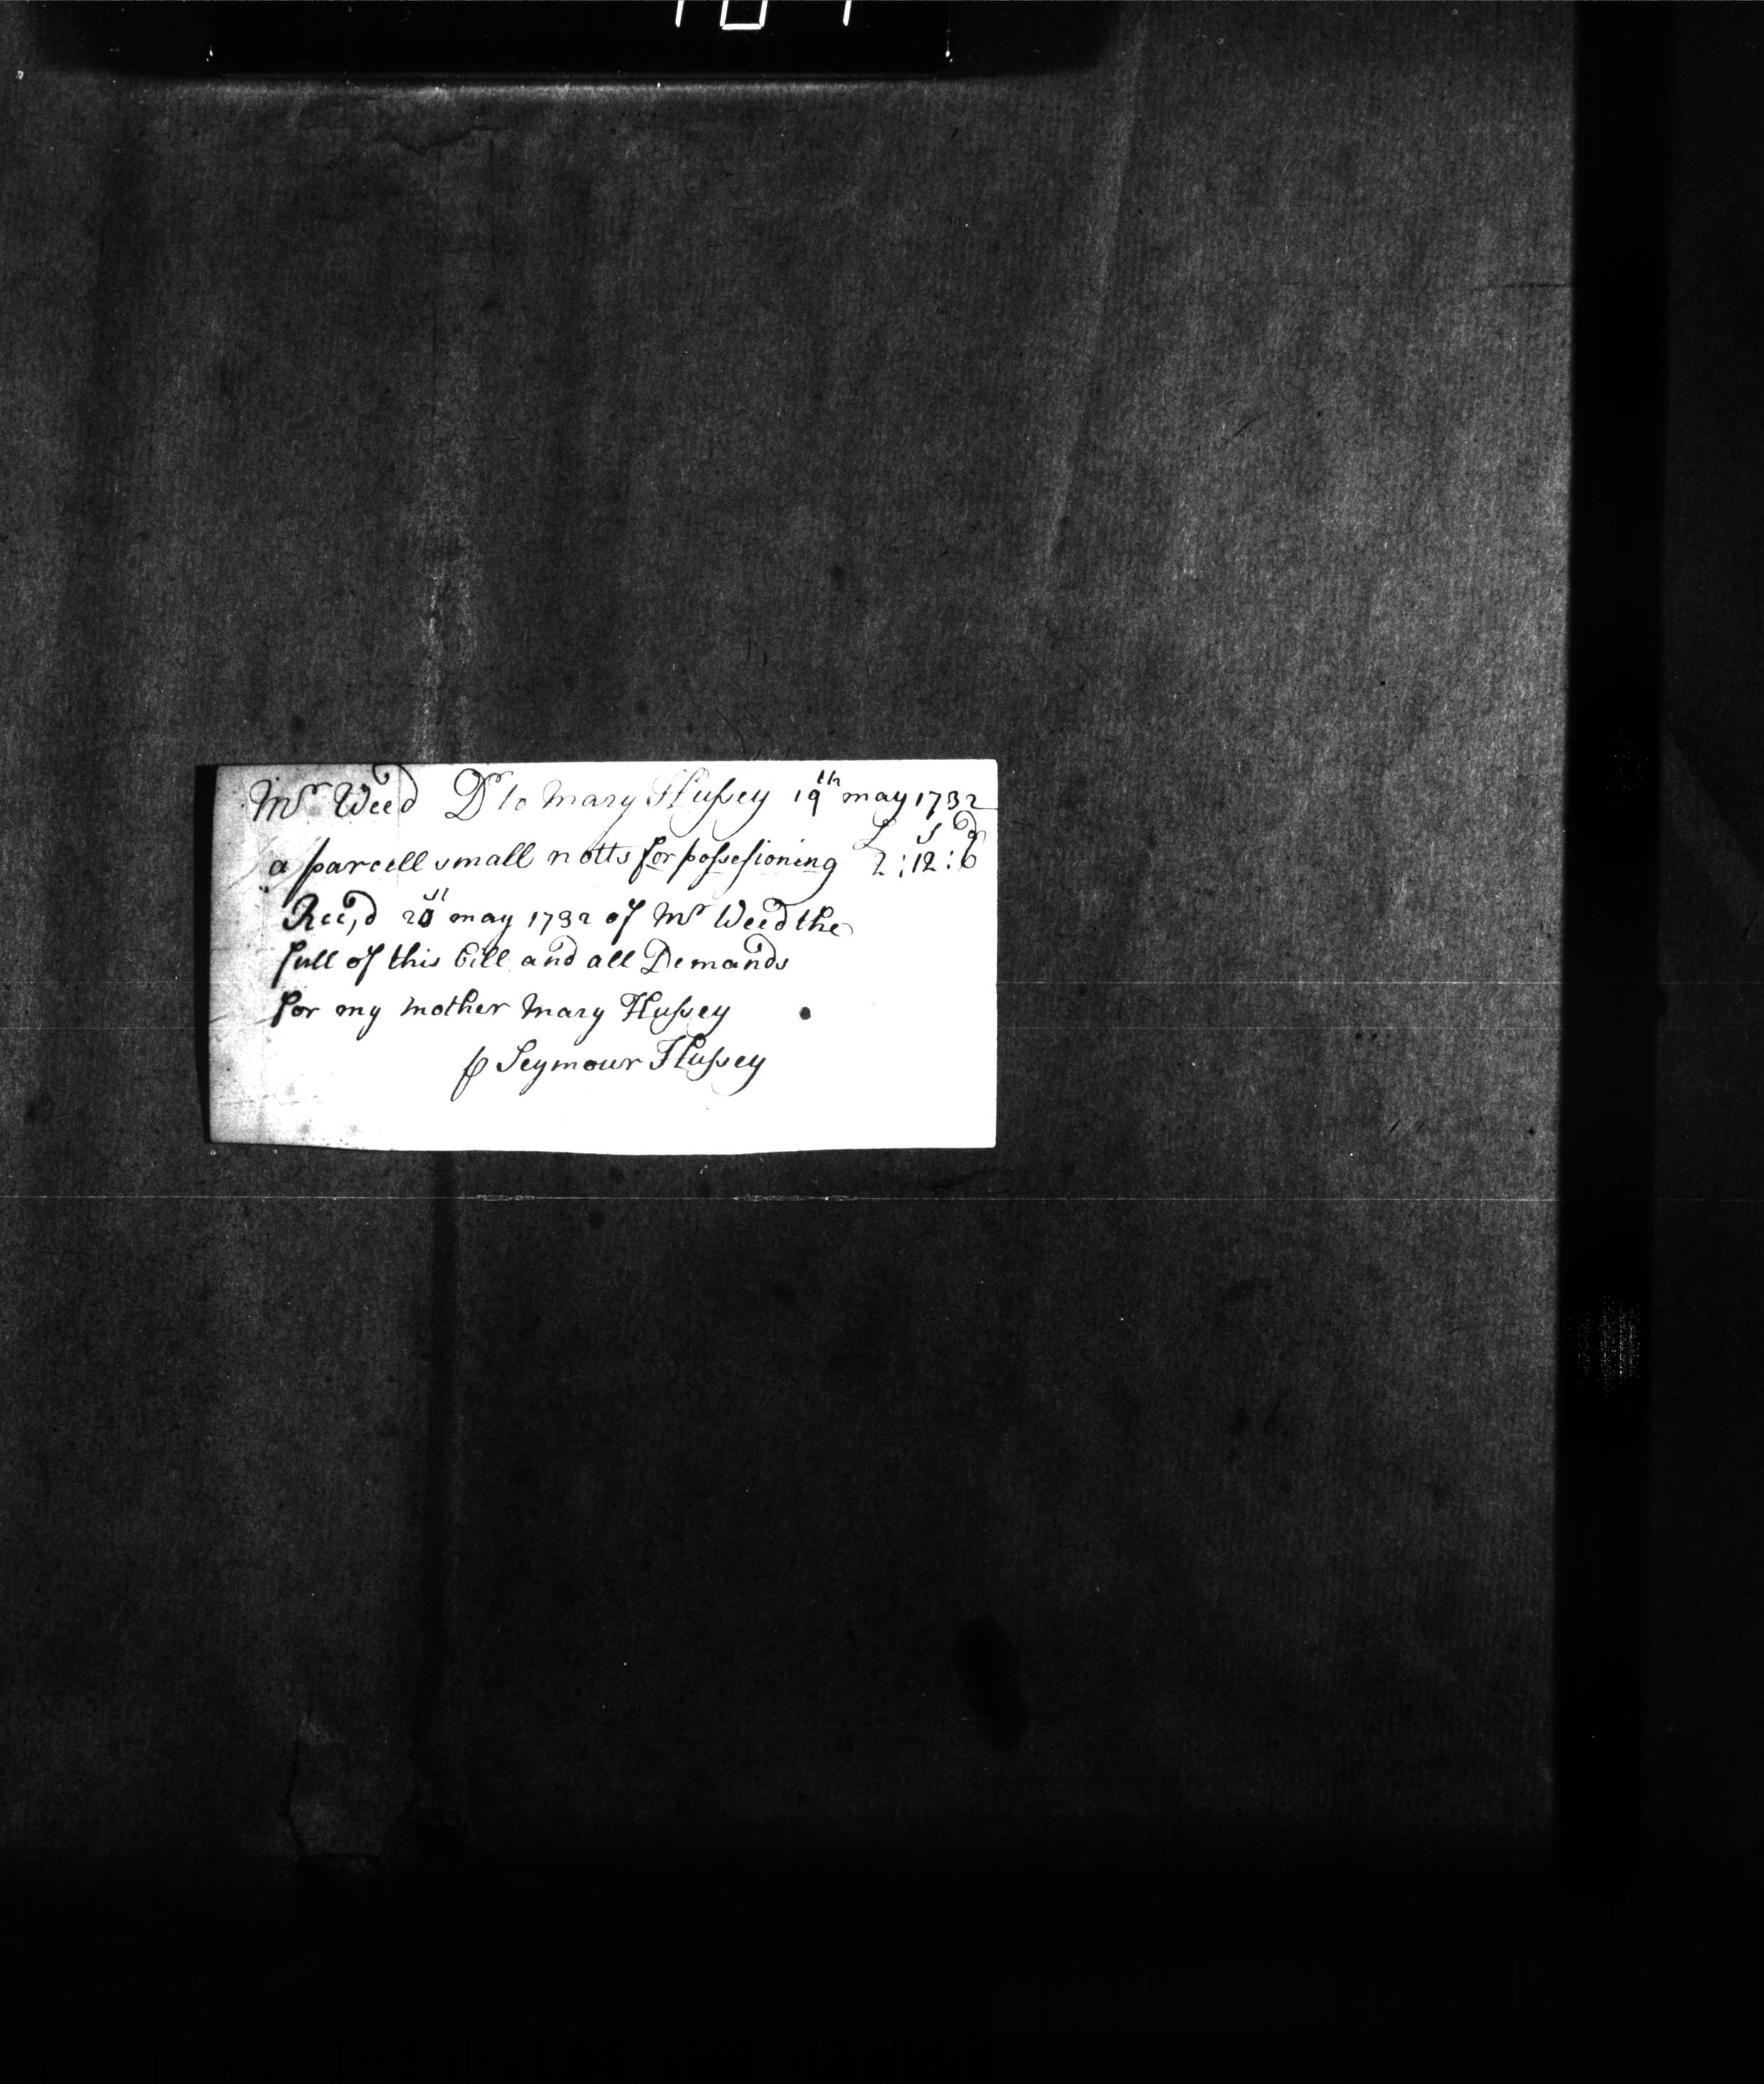 Mr Weed Dr to Mary Hussey 19th may 1732
L S D
a parcell small notts for possesioning 2 : 12 : 6
Rec,d 20 may 1732 of Mr Weed the
full of this bill and all Demands
for my mother Mary Hussey
p Seymour Hussey